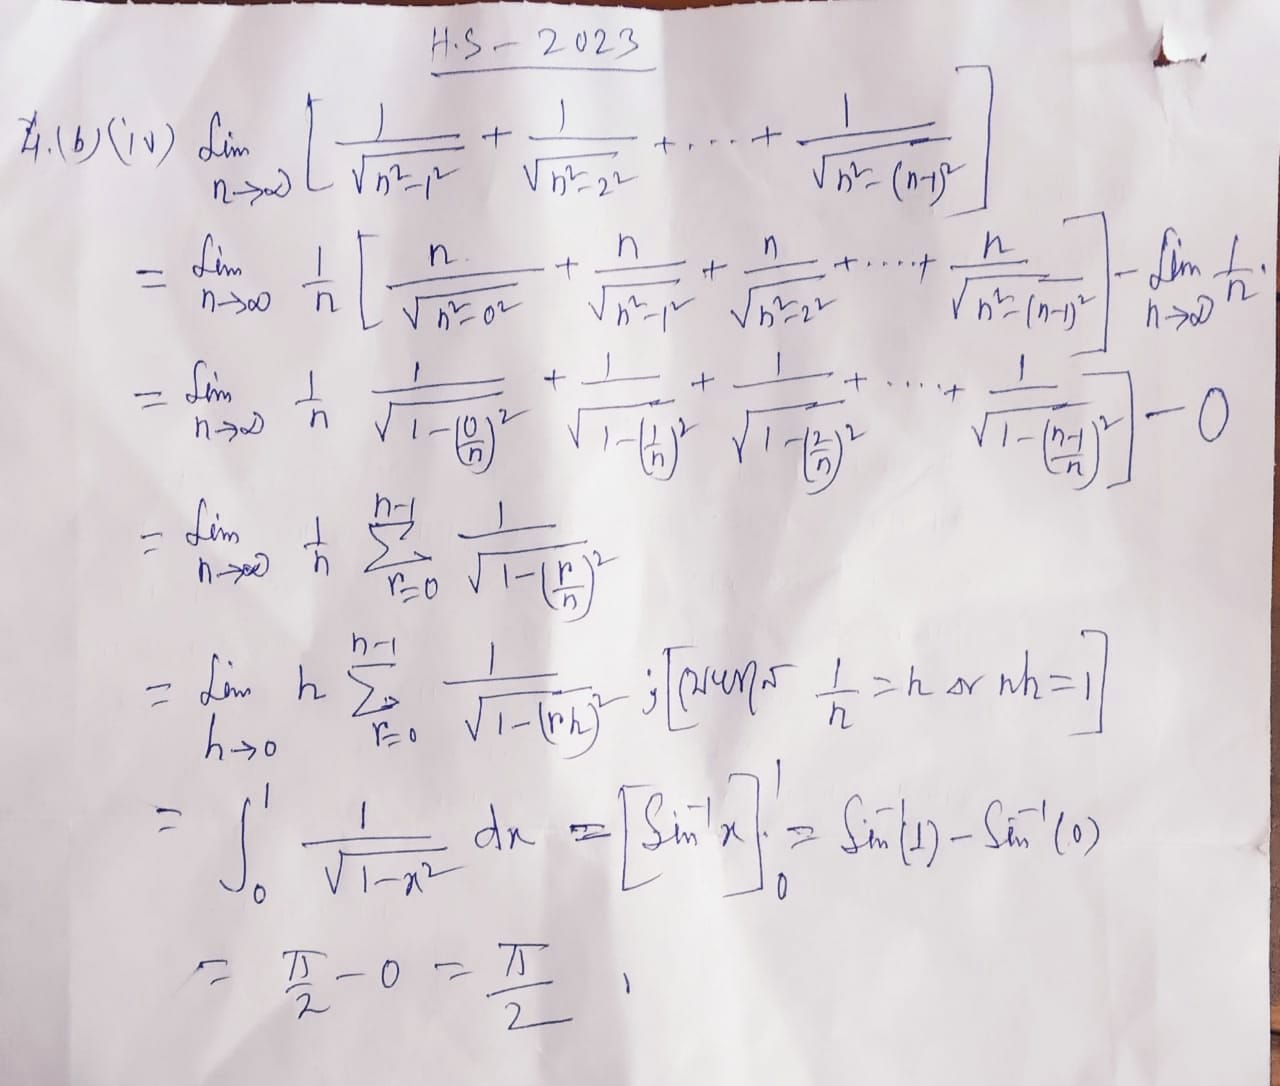 H.S - 2023
4.(b)(iv) Lim n→∞ [ 1/√(n²-1²) + 1/√(n²-2²) + .... + 1/√(n²-(n-1)²) ]
= Lim n→∞ 1/n [ n/√(n²-0²) + n/√(n²-1²) + n/√(n²-2²) + .... + n/√(n²-(n-1)²) ] - Lim n→∞ 1/n.
= Lim n→∞ 1/n 1/√(1-(0/n)²) + 1/√(1-(1/n)²) + 1/√(1-(2/n)²) + ..... + 1/√(1-((n-1)/n)²) ] - 0
= Lim n→∞ 1/n Σ r=0 n-1 1/√(1-(r/n)²)
= Lim h→0 h Σ r=0 n-1 1/√(1-(rh)²) ; [ 1/n = h or nh = 1 ]
= ∫₀¹ 1/√(1-x²) dx = [Sin⁻¹x]₀¹ = Sin⁻¹(1) - Sin⁻¹(0)
= π/2 - 0 = π/2 ,